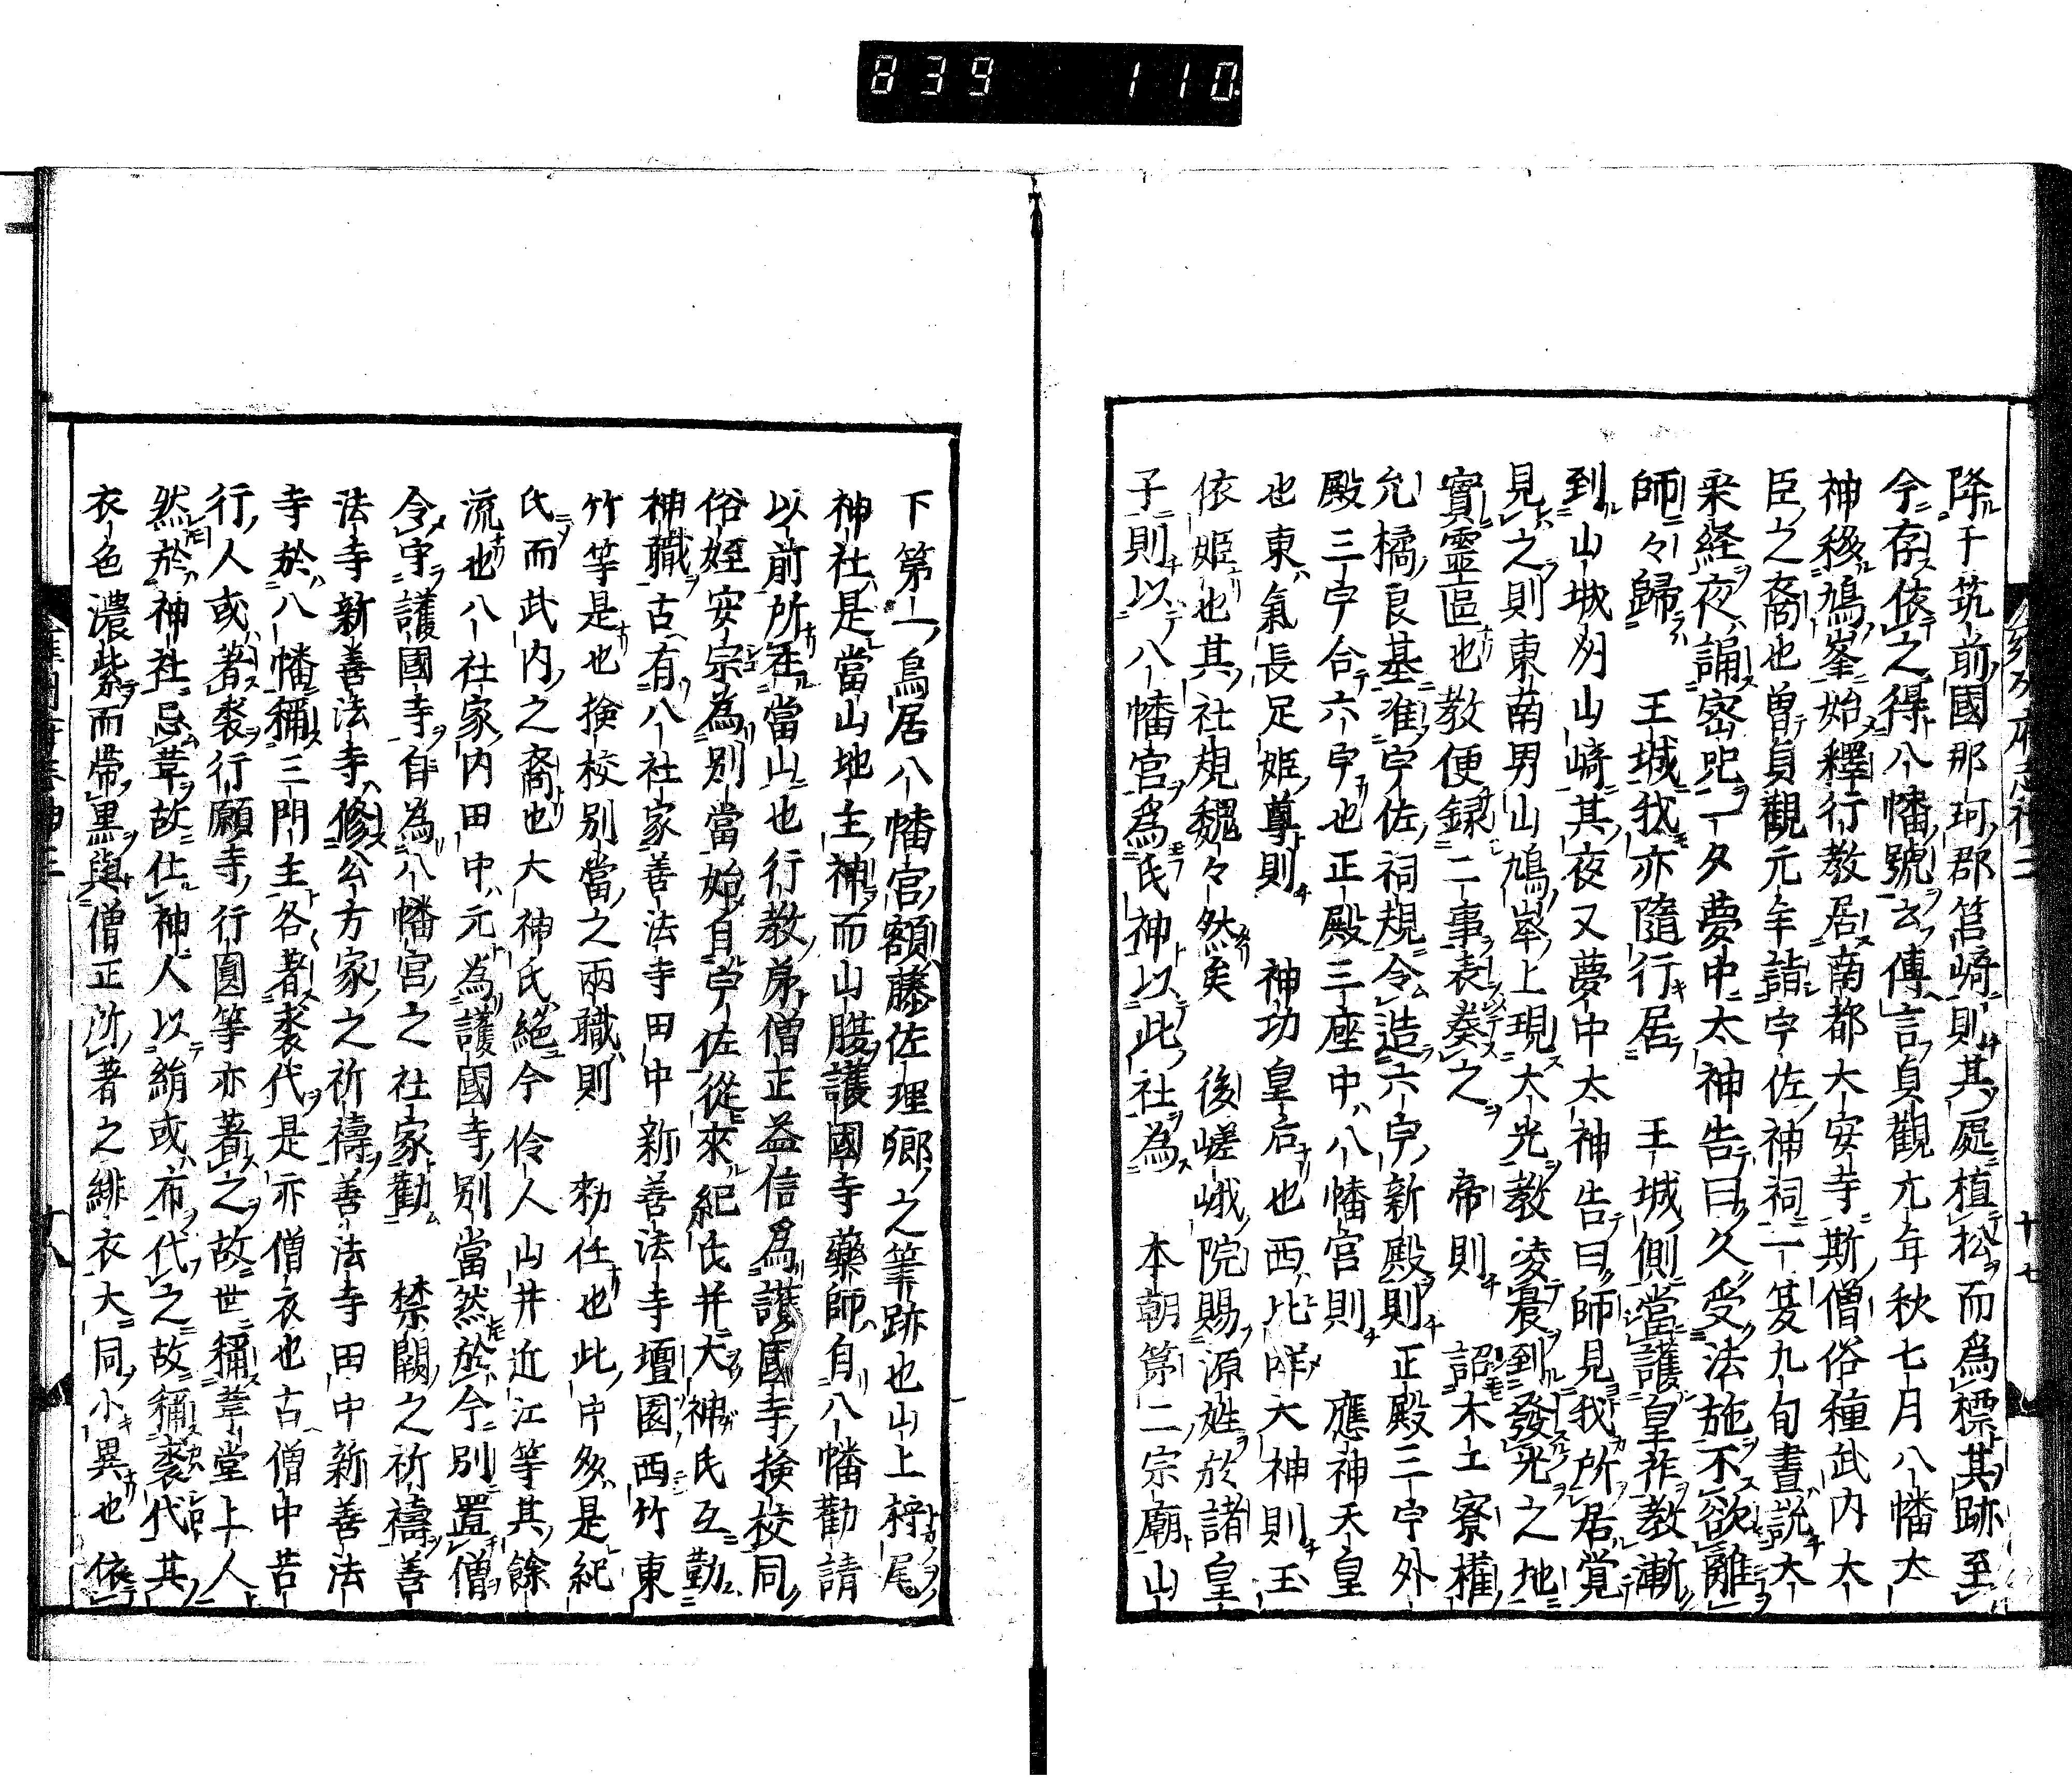 839 110
降于筑前國那珂郡筥﨑則其處植松而為標其跡至
今存依之得八幡號云傳言貞觀元年秋七月八幡大
神移鳩峯始釋行教居南都大安寺斯僧俗種武内大
臣之裔也曽貞觀元年詣宇佐神祠一夏九旬晝説大
乗経夜誦密咒一夕夢中大神告曰久受法施不欲離
師々歸 王城我亦隨行居 王城側當護皇祚教漸
到山城州山﨑其夜又夢中大神告曰師見我所居覚
見之則東南男山鳩峯上現大光教凌晨到發光之地
實靈區也教便録二事表奏之 帝則 詔木工寮權
允橘良基准宇佐祠規令造六宇新殿則正殿三宇外
殿三宇合六宇也正殿三座中八幡宮則 應神天皇
也東氣長足姫尊則 神功皇后也西比咩大神則玉
依姫也其社規魏々然矣 後嵯峨院賜源姓於諸皇
子則以八幡宮為氏神以此社為 本朝第二宗廟山
下第一鳥居八幡宮額藤佐理卿之筆跡也山上狩尾
神社是當山地主神而山腹護國寺藥師自八幡勸請
以前所在當山也行教弟僧正益信為護國寺檢校同
俗姪安宗為別當始自宇佐從來紀氏并大神氏互勤
神職古有八社家善法寺田中新善法寺壇園西竹東
竹等是也檢校別當之兩職則 勅任也此中多是紀
氏而武内之裔也大神氏絕今伶人山井近江等其餘
流也八社家内田中元為護國寺別當然於今別置僧
令守護國寺自為八幡宮之社家勸 禁闕之祈禱善
法寺新善法寺修公方家之祈禱善法寺田中新善法
寺於八幡稱三門主各著裘代是亦僧衣也古僧中苦
行人或著裘行願寺行圓等亦著之故世稱革堂上人
然於神社忌革故仕神人以絹或布代之故稱裘代其
衣色濃紫而帶黒與僧正所著之緋衣大同小異也依